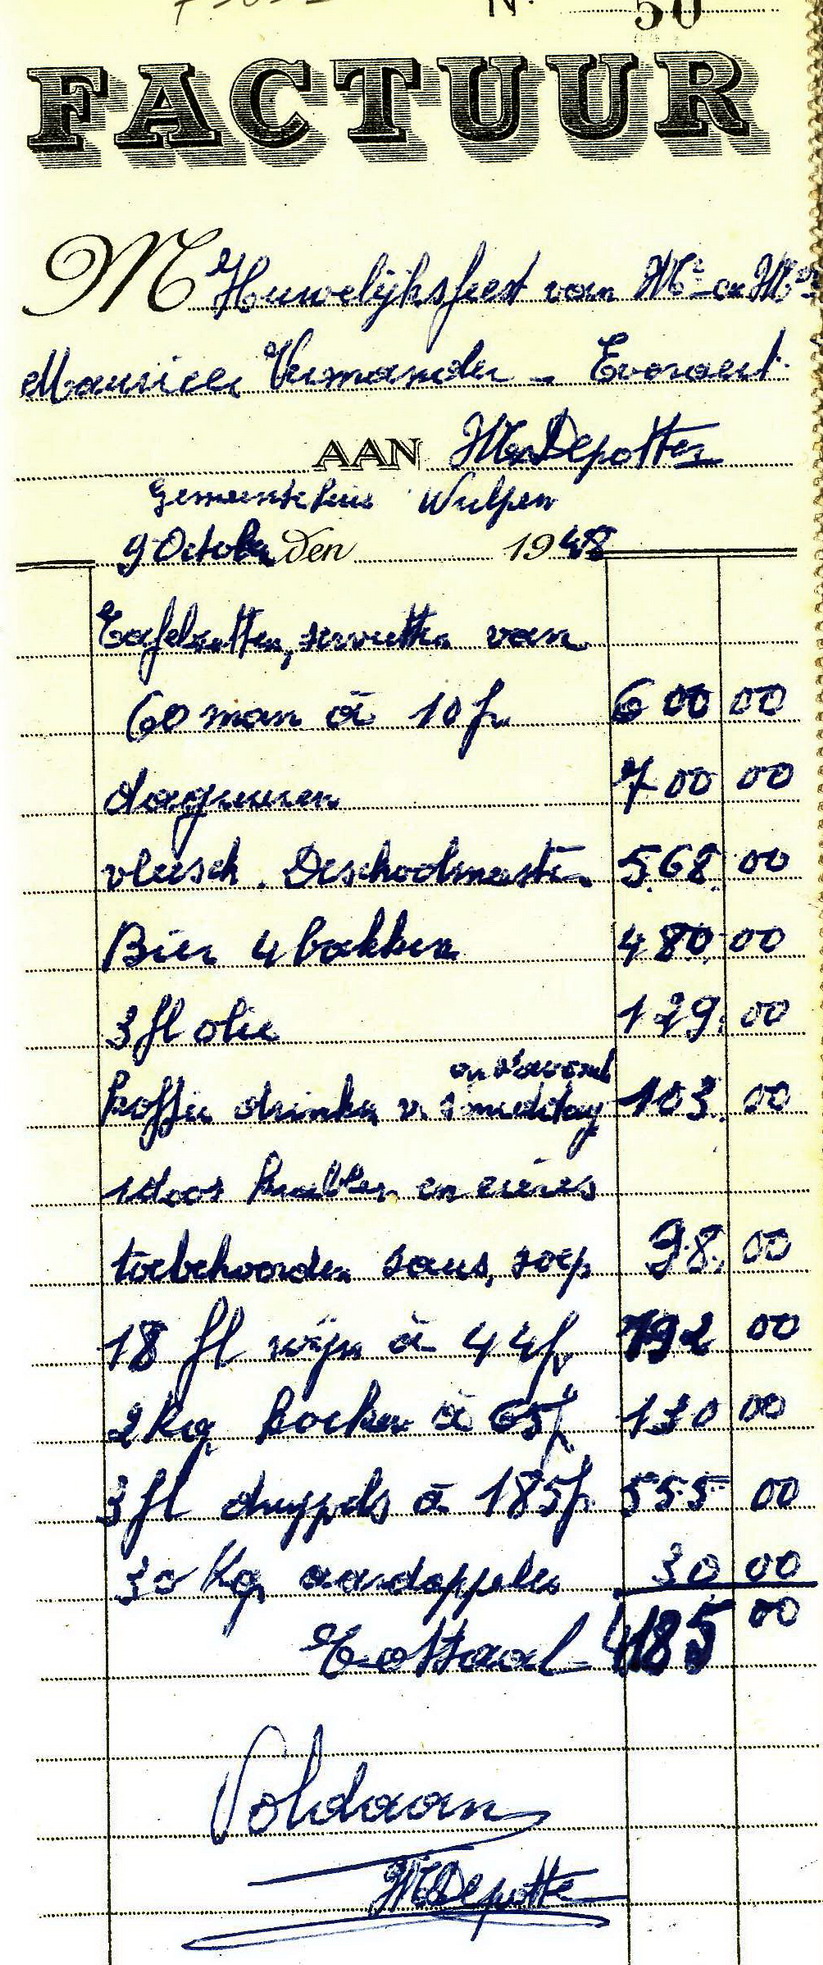 N. 50
FACTUUR
M Huwelijksfeest van Mr en Mme
Maurice Vermander - Everaert
AAN M Depotter
Gemeentehuis Wulpen
9 October den 1948
Tafelzetten, servietten van
60 man à 10 fr 600 00
daguuren 700 00
vleesch. Deschoolmeester 568 00
Bier 4 bakken 480 00
3 fl olie 129 00
en s'avond
koffie drinken v. smiddag 103 00
1 doos krabben en
toebehoorden saus, soep 98 00
18 fl wijn à 44 fr 792 00
2 kg koeken à 65 f 130 00
3 fl druppels à 185 fr 555 00
30 Kg aardappelen 30 00
Tottaal 4185 00
Voldaan
M Depotter